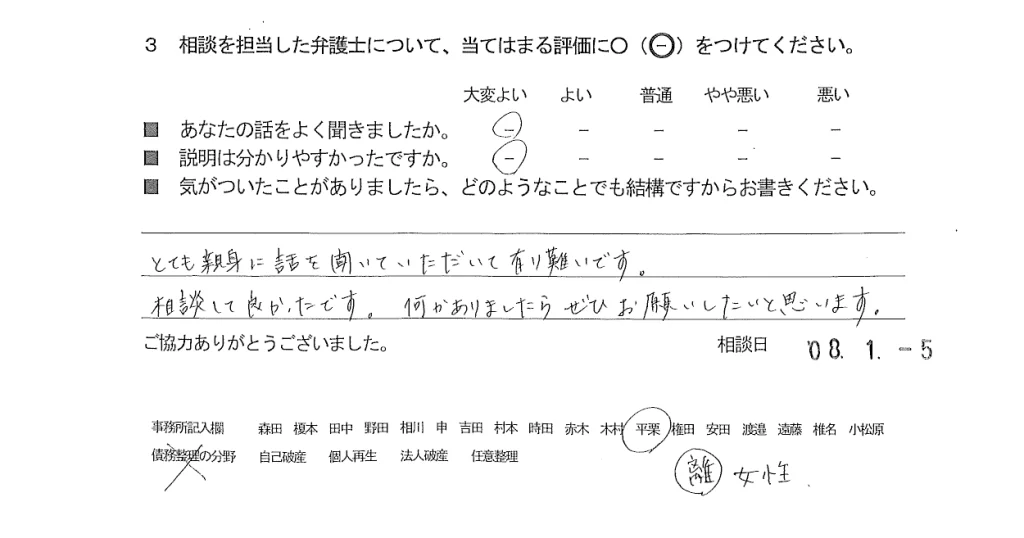 3 相談を担当した弁護士について、当てはまる評価に〇（㊀）をつけてください。
大変よい よい 普通 やや悪い 悪い
■ あなたの話をよく聞きましたか。 － － － － －
■ 説明は分かりやすかったですか。 － － － － －
■ 気がついたことがありましたら、どのようなことでも結構ですからお書きください。
とても親身に話を聞いていただいて有り難いです。
相談して良かったです。 何かありましたらぜひお願いしたいと思います。
ご協力ありがとうございました。 相談日 '08. 1. -5
事務所記入欄 森田 榎木 田中 野田 相川 申 吉田 村本 時田 赤木 木村 平栗 権田 安田 渡邉 遠藤 椎名 小松原
債務整理の分野 自己破産 個人再生 法人破産 任意整理
離 女性